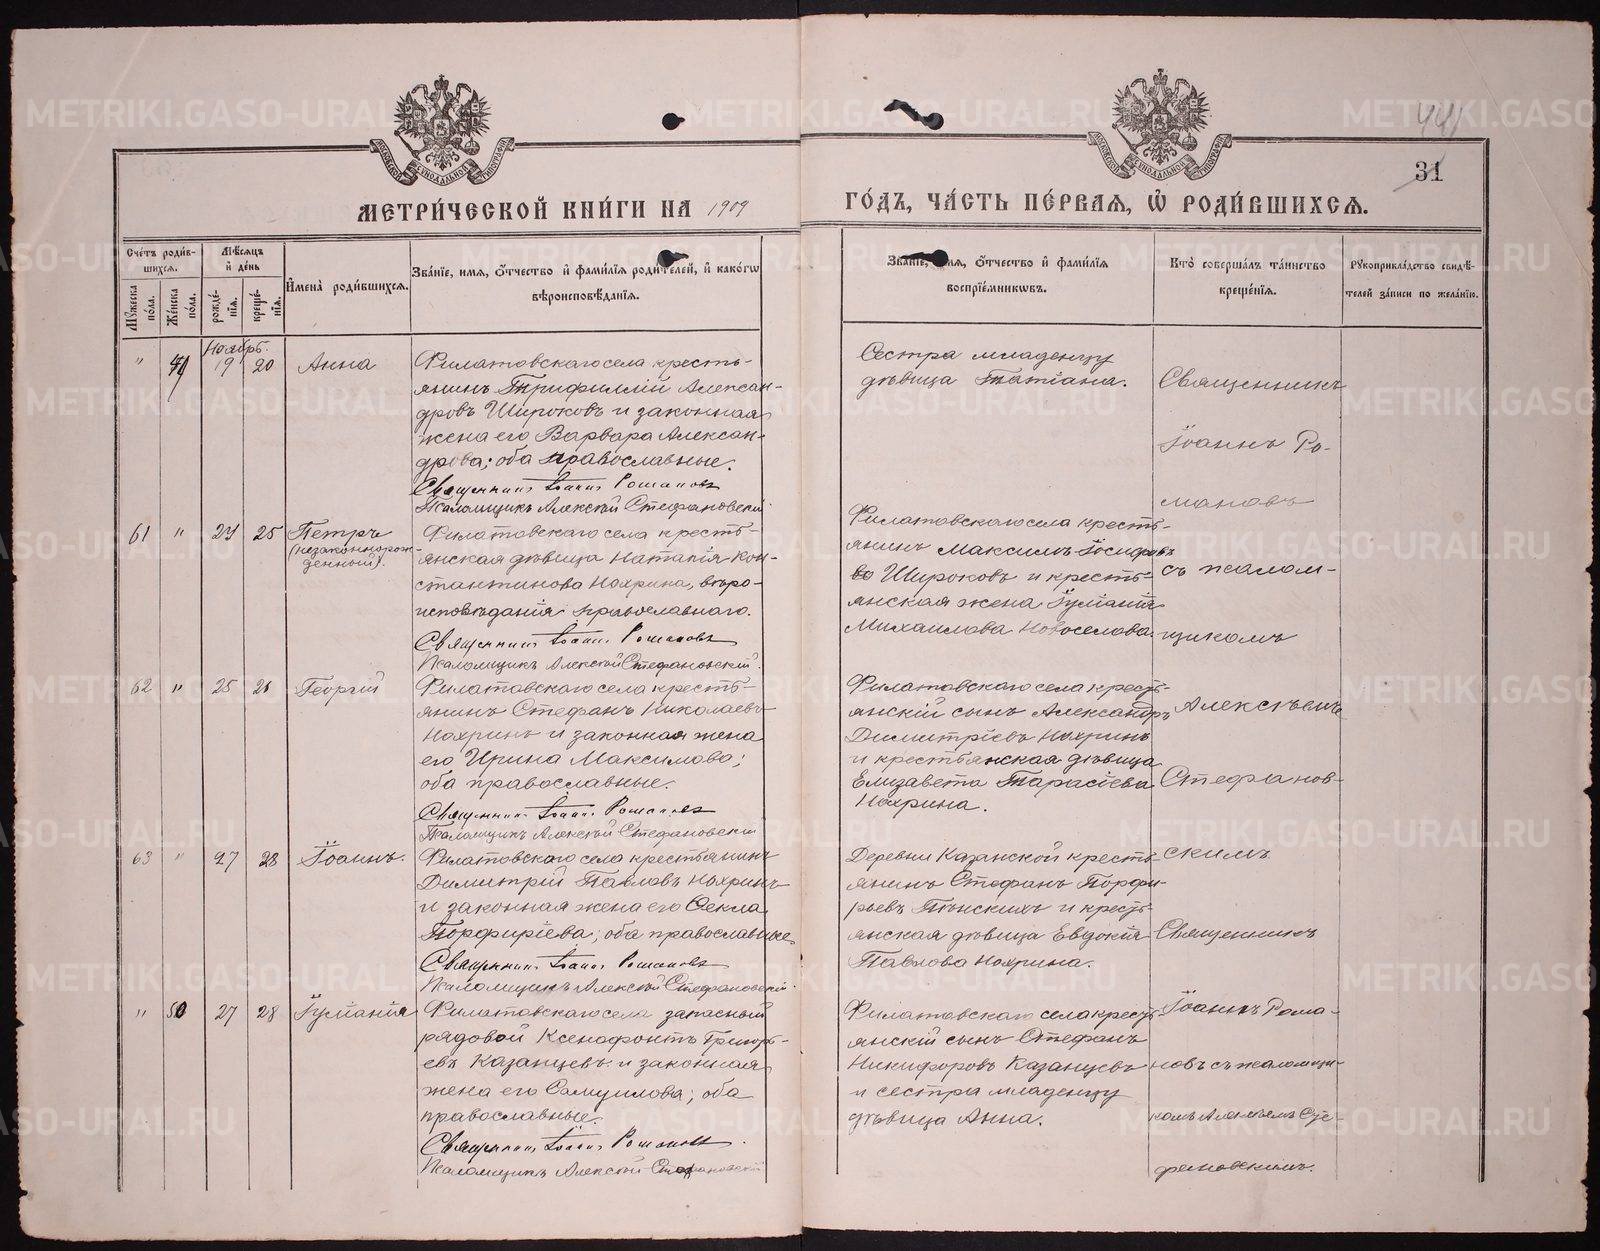 44
31
МЕТРИ́ЧЕСКОЙ КНИ́ГИ НА 1909
ГО́ДЪ, ЧА́СТЬ ПЕ́РВАЯ, Ѽ РОДИ́ВШИХСЯ.
Сче́тъ роди́в-
шихся.
Мѣ́сяцъ
и́ де́нь
Мꙋ́жеска по́ла.
Же́нска по́ла.
рожде́-
нїя.
креще́-
нїя.
И҆мена̀ роди́вшихся.
Зва́нїе, имя, о҆́тчество и҆ фами́лїя роди́телей, и҆ како́гѡ
вѣроисповѣ́данїя.
Зва́нїе, и́мя, о҆́тчество и҆ фами́лїя
воспрїе́мниковъ.
Кто̀ соверша́лъ та́инство
креще́нїя.
Рꙋкоприкла́дство свидѣ́-
телей за́писи по жела́нїю.
Ноябрь.
" 49 19 20 Анна
Филатовскаго села кресть-
янинъ Трифиллій Алексан-
дровъ Широковъ и законная
жена его Варвара Алексан-
дрова; оба православные.
Священникъ Іоаннъ Романовъ
Псаломщикъ Алексѣй Стефановскій
Сестра младенцу
дѣвица Татіана.
Священникъ
Іоаннъ Ро-
мановъ
61 " 24 25 Петръ
(незаконнорож-
денный).
Филатовскаго села кресть-
янская дѣвица Наталія Кон-
стантинова Нохрина, вѣро-
исповѣданія православнаго.
Священникъ Іоаннъ Романовъ
Псаломщикъ Алексѣй Стефановскій.
Филатовскаго села кресть-
янинъ Максимъ Іосифовъ
Широковъ и кресть-
янская жена Іуліанія
Михаилова Новоселова.
съ псалом-
щикомъ
62 " 25 26 Георгій
Филатовскаго села кресть-
янинъ Стефанъ Николаевъ
Нохринъ и законная жена
его Ирина Максимова;
оба православные.
Священникъ Іоаннъ Романовъ
Псаломщикъ Алексѣй Стефановскій
Филатовскаго села кресть-
янскій сынъ Александръ
Димитріевъ Нохринъ
и крестьянская дѣвица
Елизавета Тарасіева
Нохрина.
Алексѣемъ
Стефанов-
скимъ
63 " 27 28 Іоаннъ.
Филатовскаго села крестьянинъ
Димитрій Павловъ Нохринъ
и законная жена его Ѳекла
Порфиріева; оба православные
Священникъ Іоаннъ Романовъ
Псаломщикъ Алексѣй Стефановскій.
Деревни Казанской кресть-
янинъ Стефанъ Порфи-
рьевъ Пѣнскихъ и кресть-
янская дѣвица Евдокія
Павлова Нохрина.
Священникъ
" 50 27 28 Іуліанія
Филатовскаго села запасный
рядовой Ксенофонтъ Григорь-
евъ Казанцевъ и законная
жена его Самуилова; оба
православные.
Священникъ Іоаннъ Романовъ.
Псаломщикъ Алексѣй Стефановскій
Филатовскаго села кресть-
янскій сынъ Стефанъ
Никифоровъ Казанцевъ
и сестра младенцу
дѣвица Анна.
Іоаннъ Рома-
новъ съ псаломщи-
комъ Алексѣемъ Сте-
фановскимъ.
METRIKI.GASO-URAL.RU